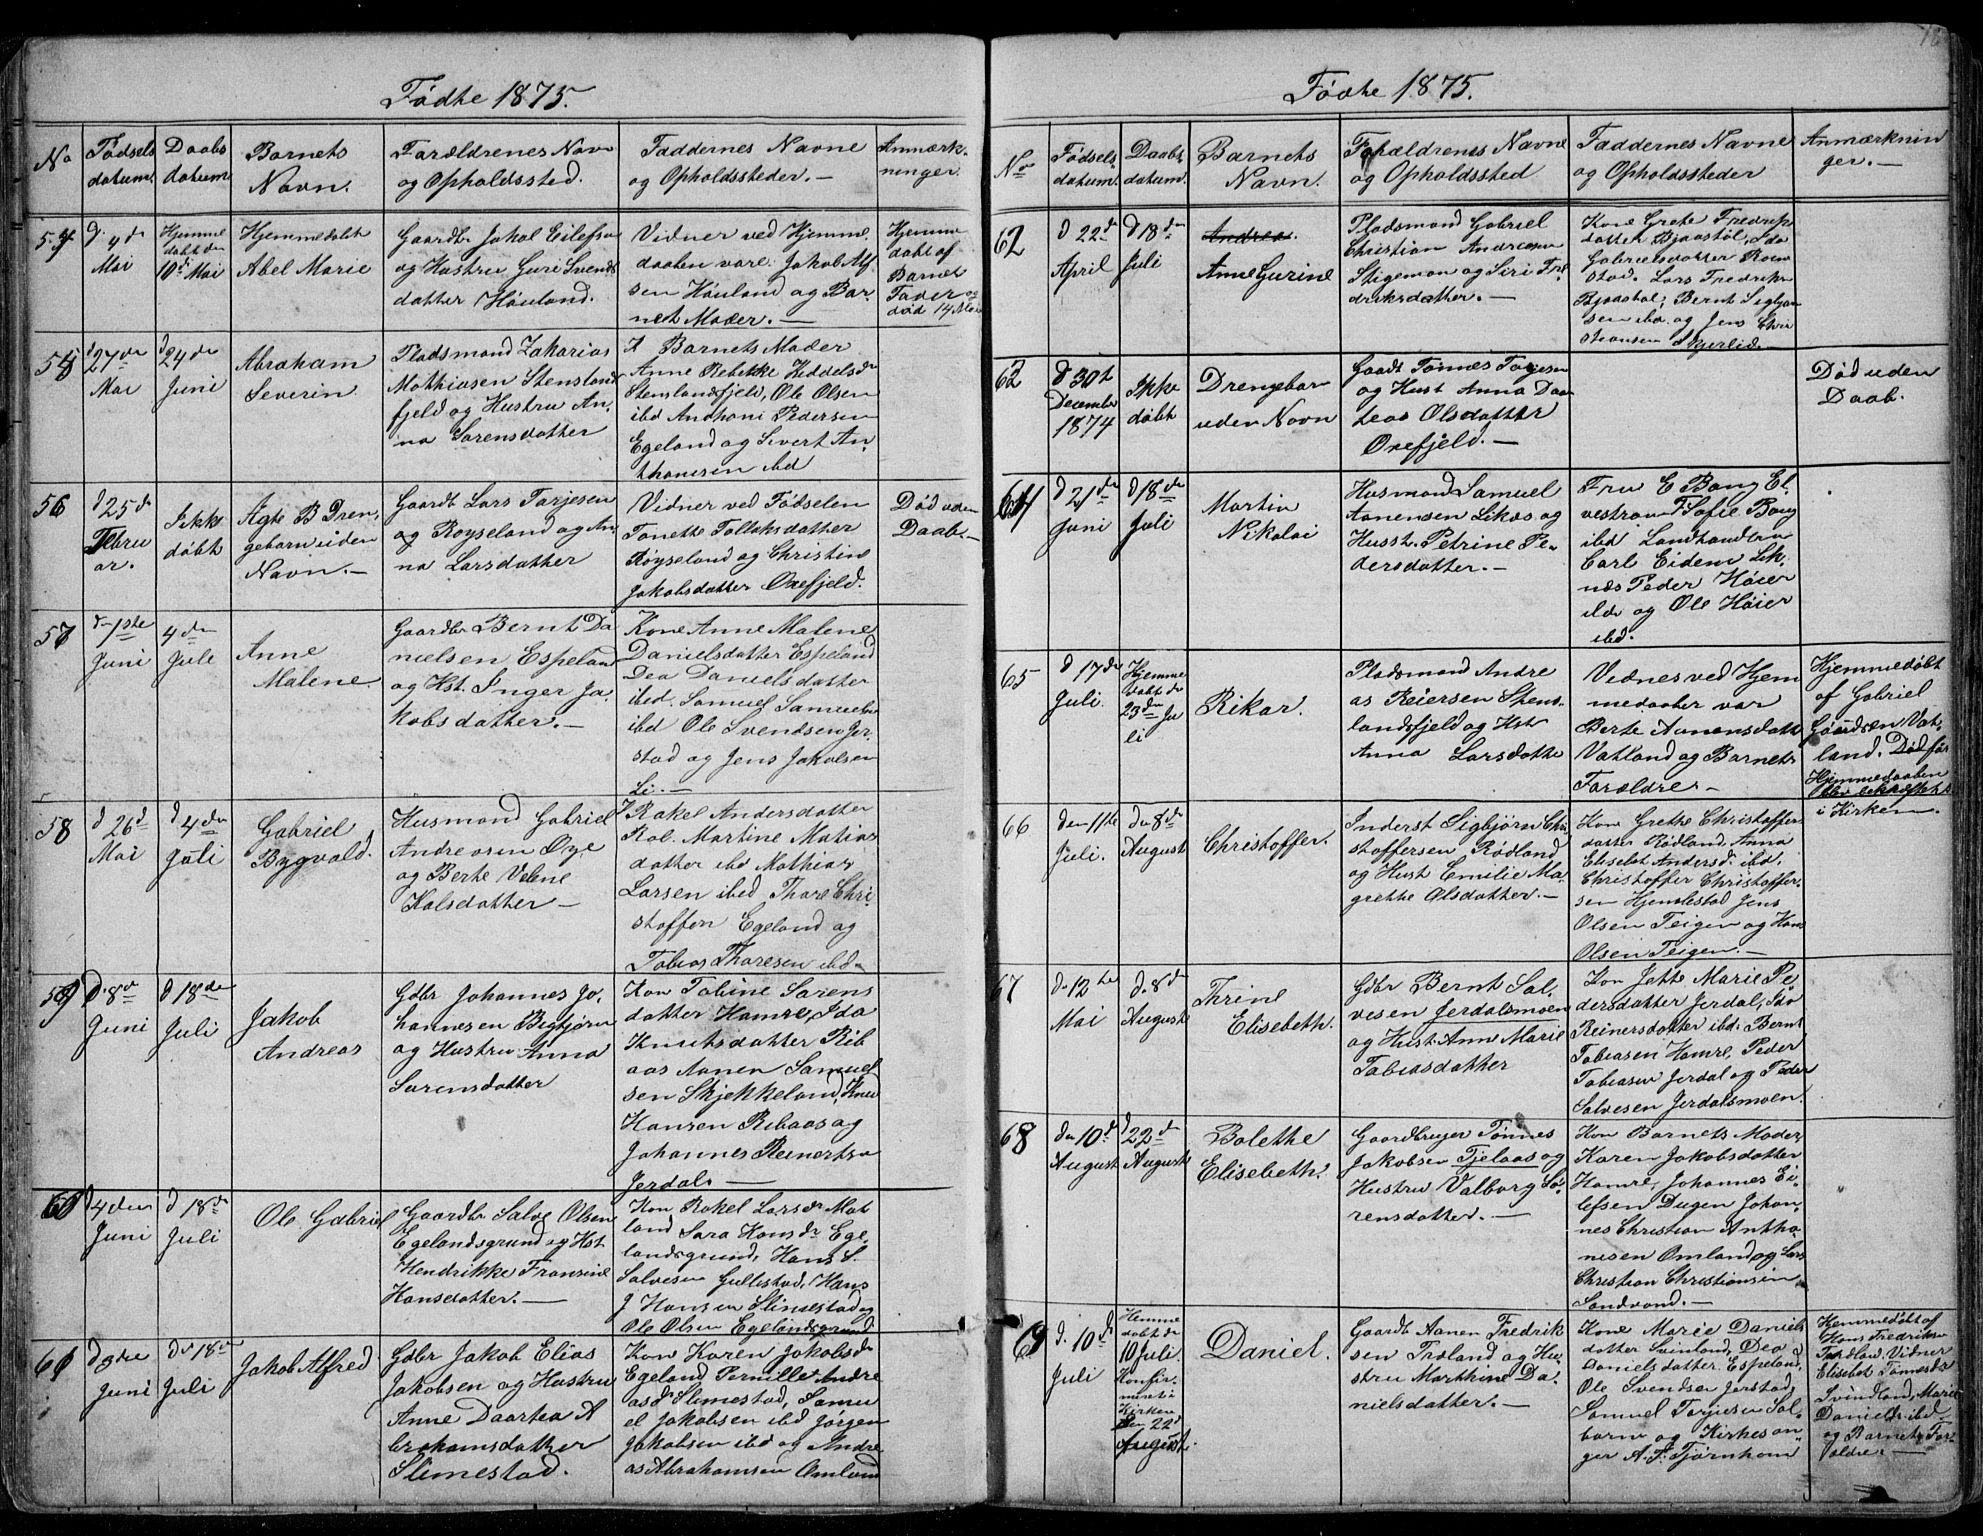 Fødte 1875.
No
Fødsels
datum.
Daabs
datum
Barnets
Navn.
Forældrenes Navn
og Opholdssted.
Faddernes Navne
og Opholdssteder. —
Anmærk-
ninger.
54
d. 4de
Mai
Hjemme
døbt den
10de Mai
Hjemmedøbt
Abel Marie
Gaardbr Jakob Eilefsen
og Hustru Guri Svends
datter Houland.
Vidner ved Hjemme
daaben vare: Jakob
sen Houland og Bar-
nets Moder. —
Hjemme
døbt af
Barnets
Fader og
død 14 Mai
55
d 27de
Mai
d 24de
Juni
Abraham
Severin
Pladsmand Zakarias
Mathiasen Stensland
fjeld og Hustru An-
na Sørensdatter
K Barnets Moder
Anne Rebekke Kiddelsdr
Stenslandsfjeld, Ole Olsen
ibd Anthoni Pedersen
Egeland og Sivert An-
thonisen ibd
56
d 25de
Febru
ar.
Ikke
døbt
Ægte B Dren-
gebarn uden
Navn. —
Gaardb Lars Tarjesen
og Røyseland og An-
na Larsdatter
Vidner ved Fødselen
Tonette Tollaksdatter
Røyseland og Christine
Jakobsdatter Oxefjeld.
Død uden
Daab. —
57
den 1ste
Juni
4de
Jule
Anne
Malene.
Gaardbr Bernt Da
nielsen Espeland
og Hst. Inger Ja
kobsdatter. —
Kone Anne Malene
Danielsdatter Espeland
Dea Danielsdatter
ibd. Samuel Samuelsen
ibd Ole Svendsen Jer
stad og Jens Jakobsen
Li. —
58
d 26de
Mai
d 4de
Juli
Gabriel
Bygvald.
Husmand Gabriel
Andreasen Øye
og Berte Velene
Kalsdatter —
K Rakel Andersdatter
Martine Matias
datter ibd Mathias
Larsen ibid Thore Chri-
stoffersen Egeland og
Tobias Thoresen ibd
59
D. 8de
Juni
d 18de
Juli
Jakob
Andreas
Gdbr Johannes Jo-
hannesen Bigbjørn
og Hustru Anna
Sørensdatter
Kon Tobine Sørens
datter Hamre, Ida
Knutsdatter Rib
aas Aanen Samuel
sen Skjekkeland, Knu
Hansen Ribaas og
Johannes Reinertsen
Jerdal —
60
d 4den
Juni
d 18de
Juli
Ole Gabriel
Gaardbr Salve Olsen
Egelandsgrund og Hst
Hendrikke Fransine
Hansdatter. —
Kon Rakel Larsdr Mat
land Sara Hansdr Ege-
landsgrund, Hans S.
Salvesen Gullestad, Hans
J Hansen Slimestad og
Ole Olsen Egelandsgrund
61
d 3die
Juni
den 18de
Juli
Jakob Alfred
Gdbr Jakob Elias
Jakobsen og Hustru
Anne Daartea A
brahamsdatter
Slimestad.
Kon Karen Jakobsdr
Egeland Pernille Andre
asdr Slimestad, Samu
el Jakobsen ibd Jørgen
Jakobsen ibd og Andre
as Abrahamsen Omland
Fødte 1875.
No
Fødsels-
datum.
Daabs
datum.
Barnets
Navn.
Forældrenes Navne
og Opholdssted
Faddernes Navne
og Opholdssteder
Anmærknin
ger. —
62
d 22de
April
d 18de
Juli
Andrea.
Anne Gurine
Pladsmand Gabriel
Christian Andreasen
Stigeman og Siri Fre
driksdatter. —
Kone Grete Fredriks
datter Bjaastøl, Ida
Gabrielsdatter
stad. Lars Fredriksen
Bjaastøl, Bernt Sigbjørn
sen ibd. og Jens Chri
stiansen Skjerlid. —
63
d 30te
December
1874
Ikke
døbt
Drengebarn
uden Navn
Gaardb Tønnes Tarjesen
og Hust Anna Daar
teas Olsdatter
Oxefjeld. —
Død uden
Daab.
64
d 21de
Juni
d 18de
Juli
Martin
Nikolai
Husmand Samuel
Aanensen Liknes og
Husst. Petrine Pe-
dersdatter. —
Fru E Bang El-
vestrøm F. Sofie Bang
ibd Landhandler
Carl Eidem Lik-
nes Peder Høier
ibd og Ole Høier
ibd.
65
d 17de
Juli.
Hjemme
døbt de
23de Ju
li
Rikar.
Pladsmand Andre
as Reiersen Stens-
landsfjeld og Hst
Anna Larsdatte
Vidner ved Hjem
medaaben var
Berte Aanensdatte
Vatland og Barnets
Forældre —
Hjemmedøbt
af Gabriel
Vat-
land. Død før
Hjemmedaaben
blev bekræftet
i Kirken —
66
den 11te
Juli.
den 8de
August
Christoffer.
Inderst Sigbjørn Chri
stoffersen Rødland
og Hust Emilie Ma-
grethe Olsdatter. —
Kon Grethe Christoffer
datter Rødland, Anna
Elisabet Andersd. ibd.
Christoffer Christoffer-
sen Hjemlestad Jens
Olsen Teigen og Hans
Olsen Teigen. —
67
d. 12te
Mai
d. 8de
August
Thrine
Elisebeth.
Gdbr Bernt Sal-
vesen Jerdalsmoen
og Hust. Ane Marie
Tobiasdatter
Kon Jette Marie Pe-
dersdatter Jerdal, Ida
Reinersdatter ibd. Bernt
Tobiasen Hamre, Peder
Tobiasen Jerdal og Peder
Salvesen Jerdalsmoen.
68
den 10de
August
d 22de
August
Bolethe
Elisebeth.
Gaardbruger Tønnes
Jakobsen Tjelaas og
Hustru Valborg Sø-
rensdatter. —
Kon Barnets Moder
Karen Jakobsdatter
Hamre, Johannes Ei-
lefsen Dugen Johan-
nes Christian Antho-
nisen Omland og Lars
Christian Christiansen
Sandvand. —
69
d. 10de
Juli
Hemme
døbt de
10 Juli.
Konfir-
meret i
Kirken
den 22d
August.
Daniel.
Gaardb Aanen Fredrik
sen Trøland og Hu-
stru Marthine Da-
nielsdatter. —
Kone Marie Daniels
datter Svinland, Dea
Danielsdatter Espeland,
Ole Svendsen Jerstad,
Samuel Tarjesen Sol-
barne og Kirkesan-
ger A. F. Tjørnhom
Hemmedøbt af
Hans Fredriksen
Trøland, Vidner
Elisebet Tønnesdr
Svindland, Marie
Danielsdr ibd
og Barnets For-
ældre. —